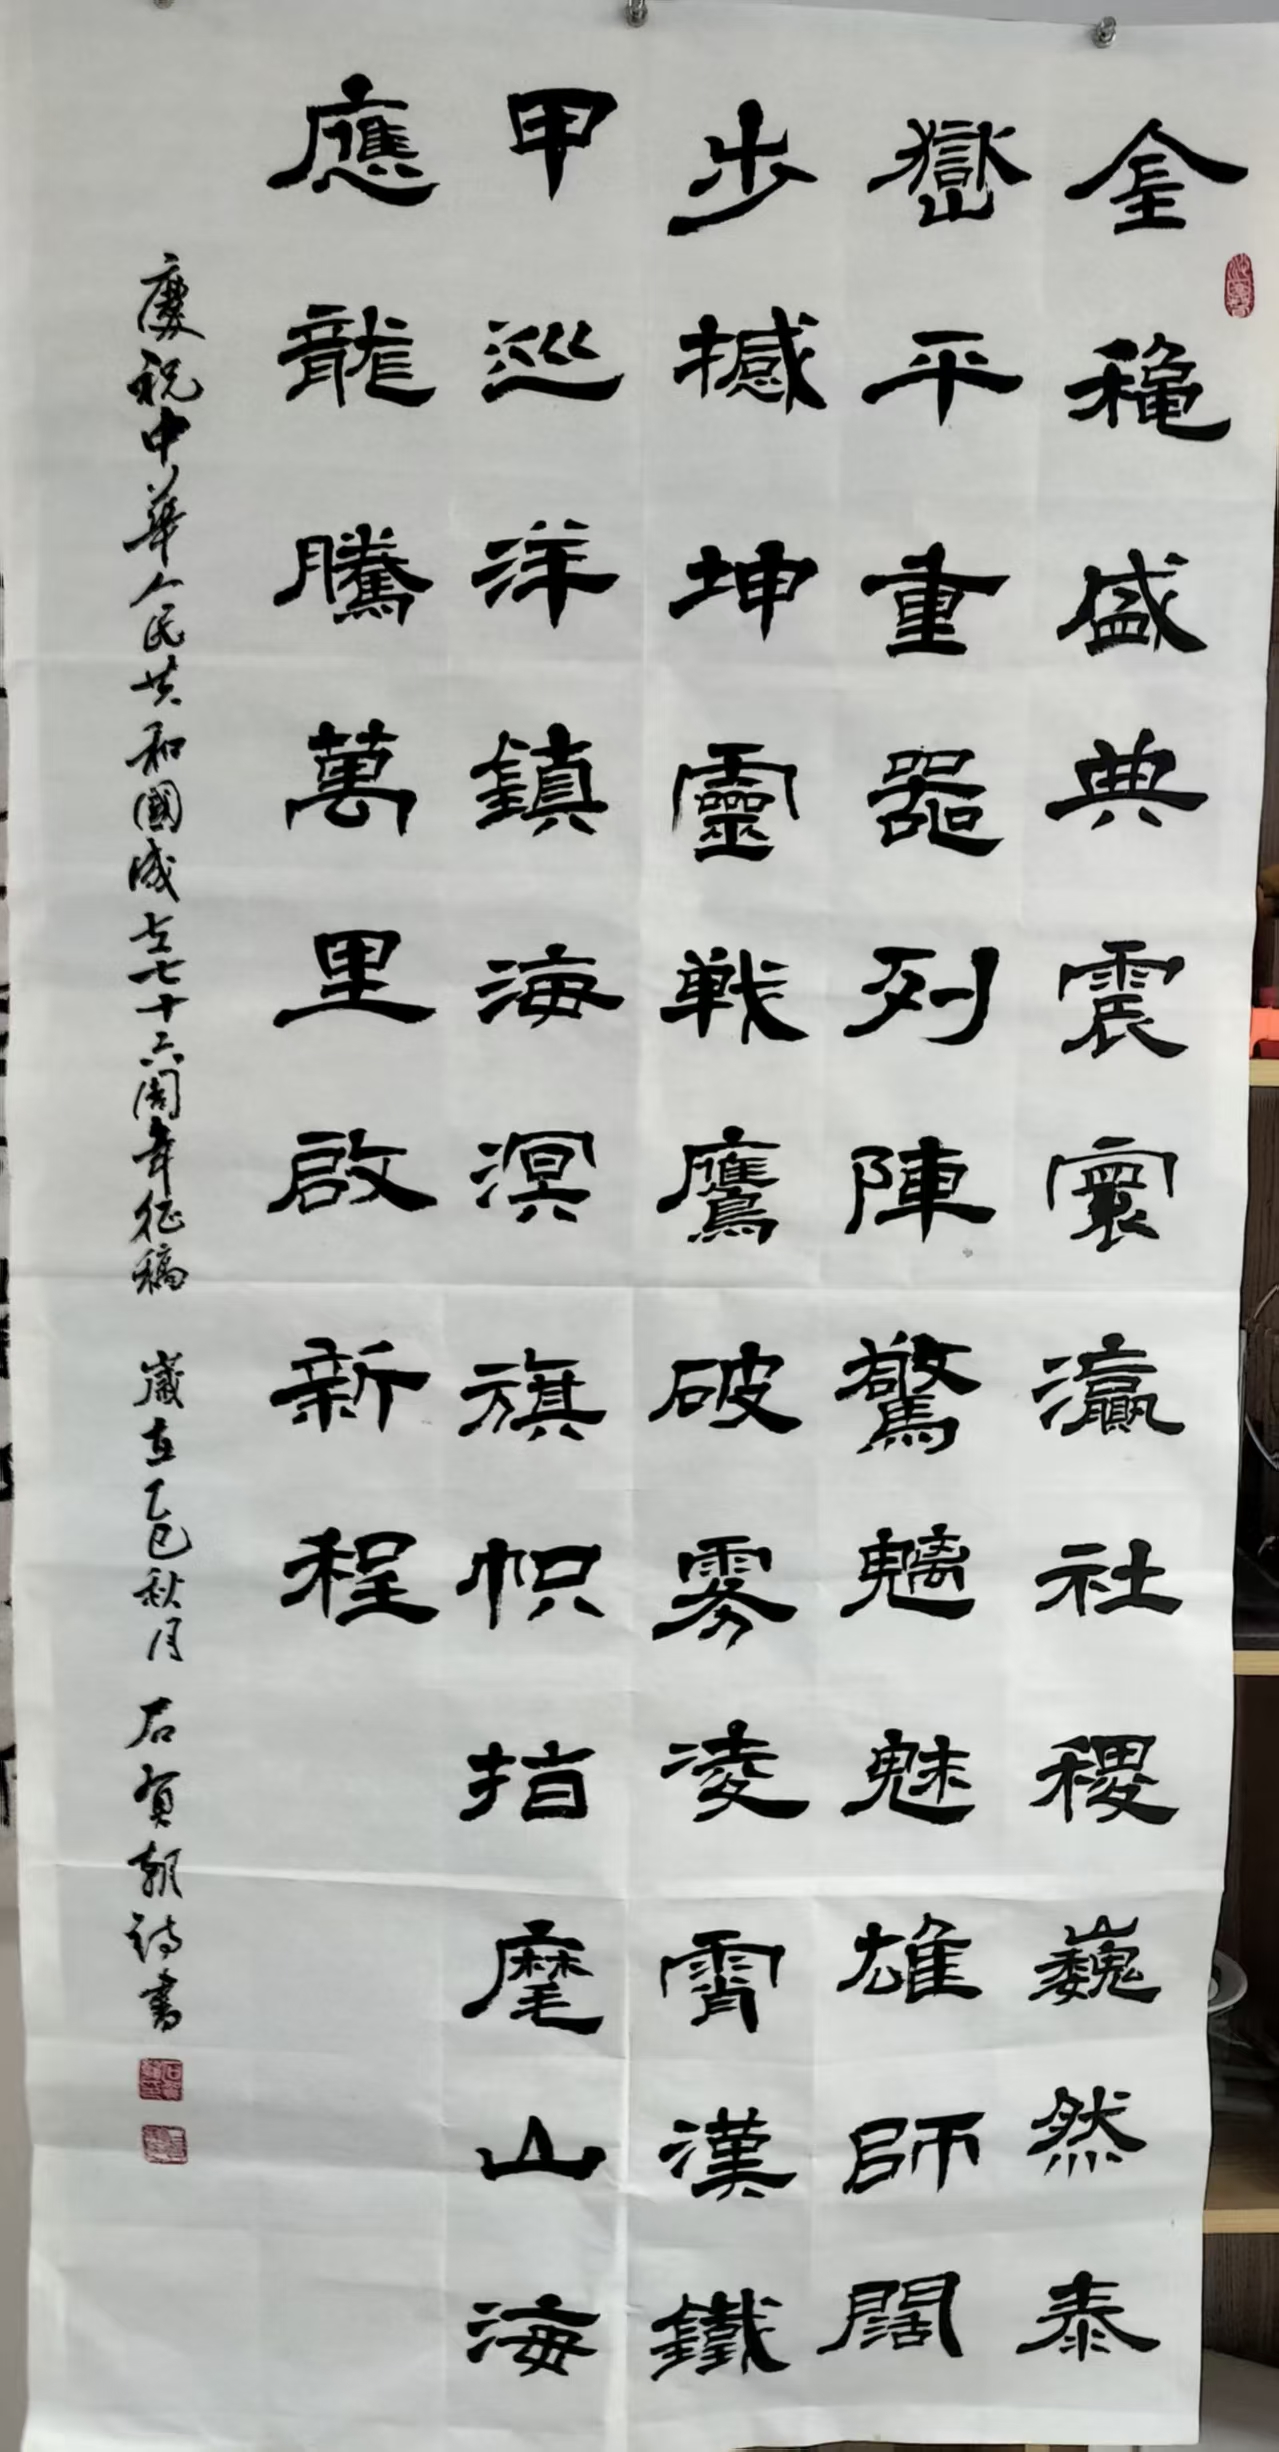 金穐盛典震寰瀛社稷巍然泰
嶽平重器列陣驚魑魅雄師闊
步撼坤靈戦鷹破雾凌霄漢鐵
甲巡洋鎮海溟旗帜指麾山海
應龍騰萬里啟新程
慶祝中華人民共和國成立七十六周年征稿 歲在乙巳秋月 石賀朝詩書